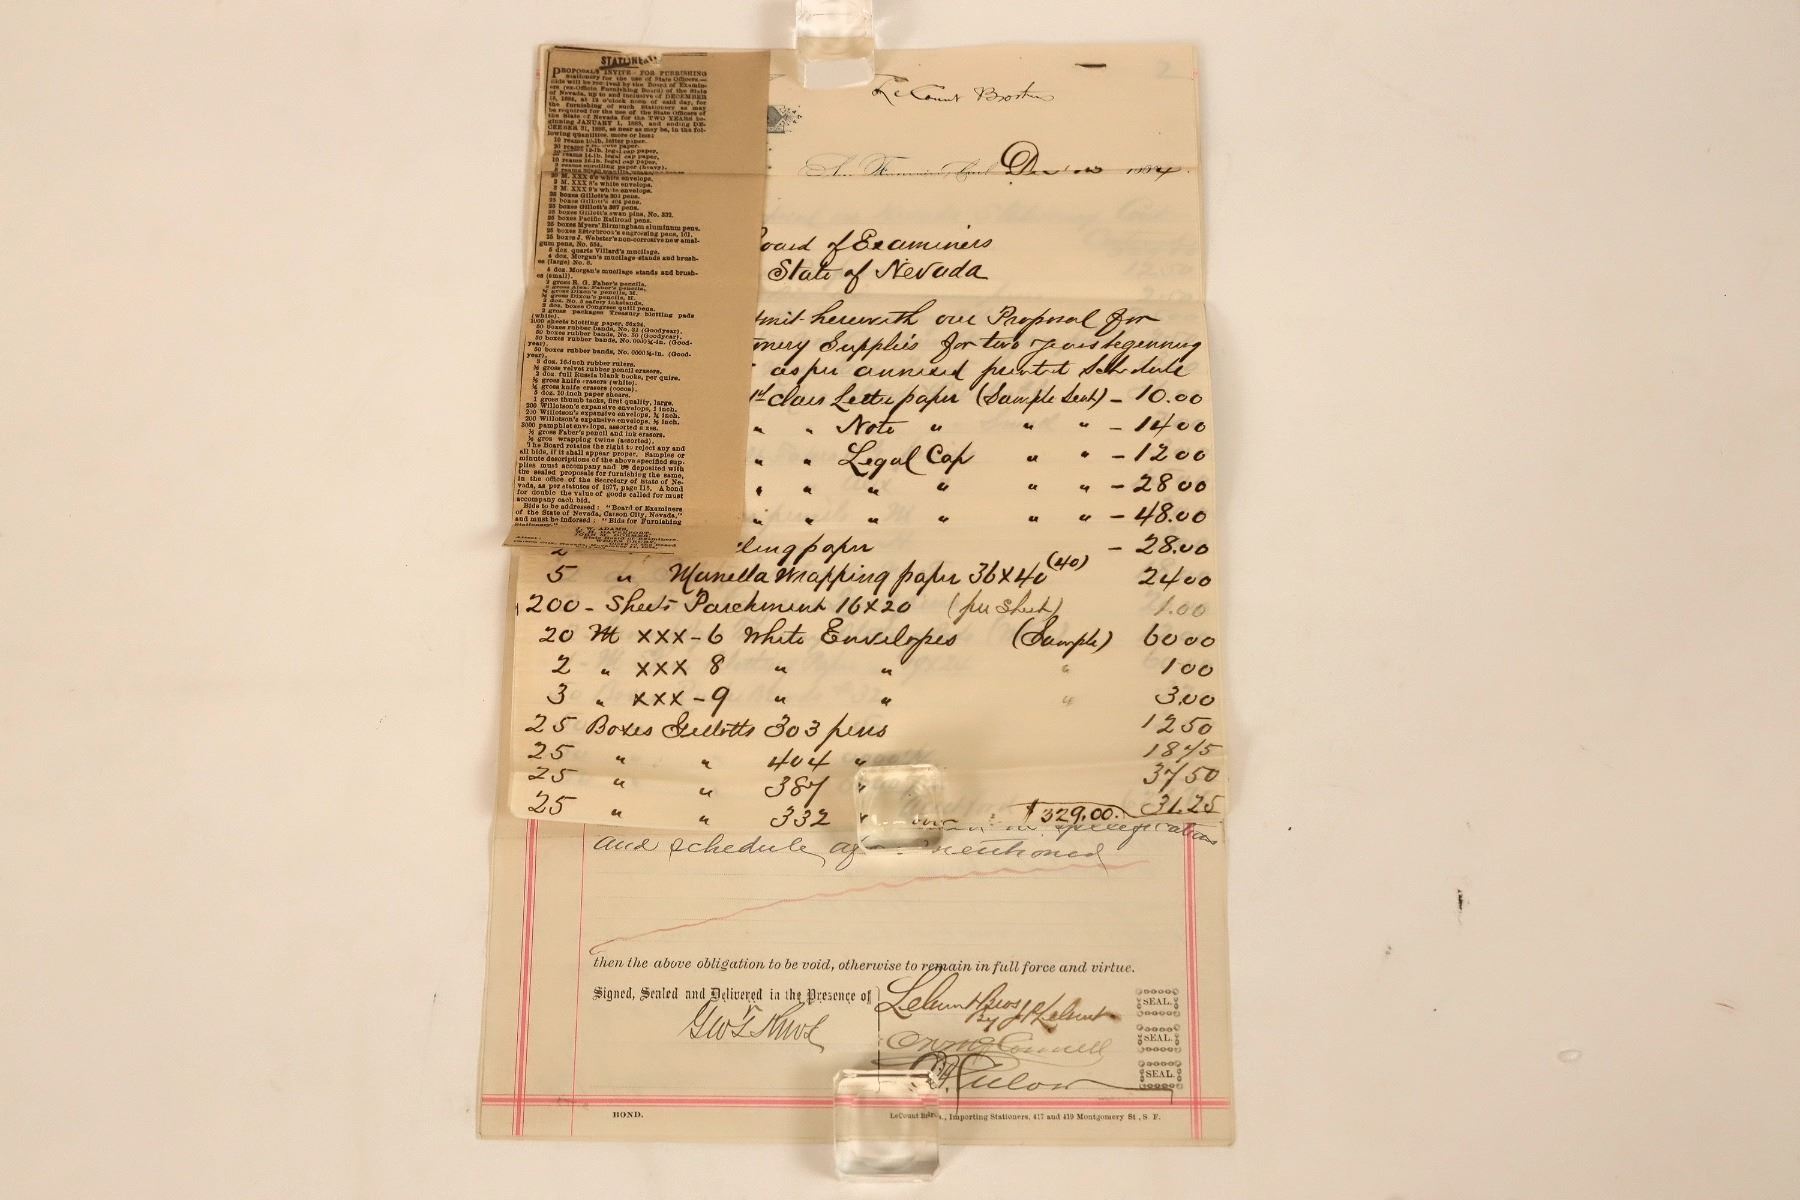 STATIONERY
PROPOSALS INVITED FOR FURNISHING
Stationery for the use of State Officers.—
Bids will be received by the Board of Examin-
ers (ex-Officio Furnishing Board) of the State
of Nevada, up to and inclusive of DECEMBER
15, 1884, at 12 o'clock noon of said day, for
the furnishing of such Stationery as may
be required for the use of the State Officers of
the State of Nevada for the TWO YEARS be-
ginning JANUARY 1, 1885, and ending DE-
CEMBER 31, 1886, as near as may be, in the fol-
lowing quantities, more or less:
10 reams 10-lb. letter paper.
20 reams note paper.
reams 12-lb. legal cap paper.
reams 14-lb. legal cap paper.
10 reams 16-lb. legal cap paper.
reams envelling paper (heavy).
20 M. XXX 6's white envelops.
2 M. XXX 8's white envelops.
3 M. XXX 9's white envelops.
25 boxes Gillott's 303 pens.
25 boxes Gillott's 404 pens.
25 boxes Gillott's 387 pens.
25 boxes Gillott's swan pins, No. 332.
25 boxes Pacific Railroad pens.
25 boxes Myers' Birmingham aluminum pens.
25 boxes Esterbrook's engrossing pens, 161.
25 boxes J. Webster's non-corrosive new amal-
gum pens, No. 554.
5 doz. quarts Villard's mucilage.
4 doz. Morgan's mucilage stands and brush-
es (large) No. 8.
4 doz. Morgan's mucilage stands and brush-
es (small).
2 gross E. G. Faber's pencils.
gross Alex. Faber's pencils.
gross Dixon's pencils, M.
gross Dixon's pencils, H.
2 doz. No. 5 safety inkstands.
2 doz. boxes Congress quill pens.
2 gross packages Treasury blotting pads
(white).
1000 sheets blotting paper, 36x24.
50 boxes rubber bands, No. 32 (Goodyear).
50 boxes rubber bands, No. 30 (Goodyear).
50 boxes rubber bands, No. 0000 ¼-in. (Good-
year).
50 boxes rubber bands, No. 0000 ⅜-in. (Good-
year).
5 doz. 16-inch rubber rulers.
½ gross velvet rubber pencil erasers.
2 doz. full Russia blank books, per quire.
½ gross knife erasers (white).
¼ gross knife erasers (cocoa).
5 doz. 10-inch paper shears.
1 gross thumb tacks, first quality, large.
200 Willotson's expansive envelops, 1 inch.
200 Willotson's expansive envelops, ¾ inch.
200 Willotson's expansive envelops, ½ inch.
3000 pamphlet envelops, assorted sizes.
½ gross Faber's pencil and ink erasers.
½ gross wrapping twine (assorted).
The Board retains the right to reject any and
all bids, if it shall appear proper. Samples or
minute descriptions of the above specified sup-
plies must accompany and be deposited with
the sealed proposals for furnishing the same,
in the office of the Secretary of State of Ne-
vada, as per statutes of 1877, page 115. A bond
for double the value of goods called for must
accompany each bid.
Bids to be addressed: "Board of Examiners
of the State of Nevada, Carson City, Nevada,"
and must be indorsed: "Bids for Furnishing
Stationery."
J. W. ADAMS,
State Board of Examiners.
2
Le Count Brothers
Dec 10 1884
Board of Examiners
State of Nevada
mit herewith our Proposal for
onery Supplies for two years beginning
as per annexed printed Schedule
1st class Letter paper (Sample Sent) - 10.00
" " Note " " " - 14 00
" " Legal Cap " " - 12 00
" " " " " " - 28 00
" " " " " " - 48.00
2 ling paper - 28.00
5 " Manella Wrapping paper 36x40 (40) 24 00
200 - Sheets Parchment 16x20 (per Sheet) 1.00
20 M XXX-6 White Envelopes (Sample) 60 00
2 " XXX 8 " " " 1 00
3 " XXX-9 " " " 3.00
25 Boxes Gillotts 303 pens 12 50
25 " " 404 " 18 75
25 " " 387 " 37 50
25 " " 332 " $329.00. 31.25
and schedule mentioned
then the above obligation to be void, otherwise to remain in full force and virtue.
Signed, Sealed and Delivered in the Presence of
LeCount Bros
By J P LeCount
SEAL.
SEAL.
SEAL.
BOND.
LeCount Bros., Importing Stationers, 417 and 419 Montgomery St., S. F.